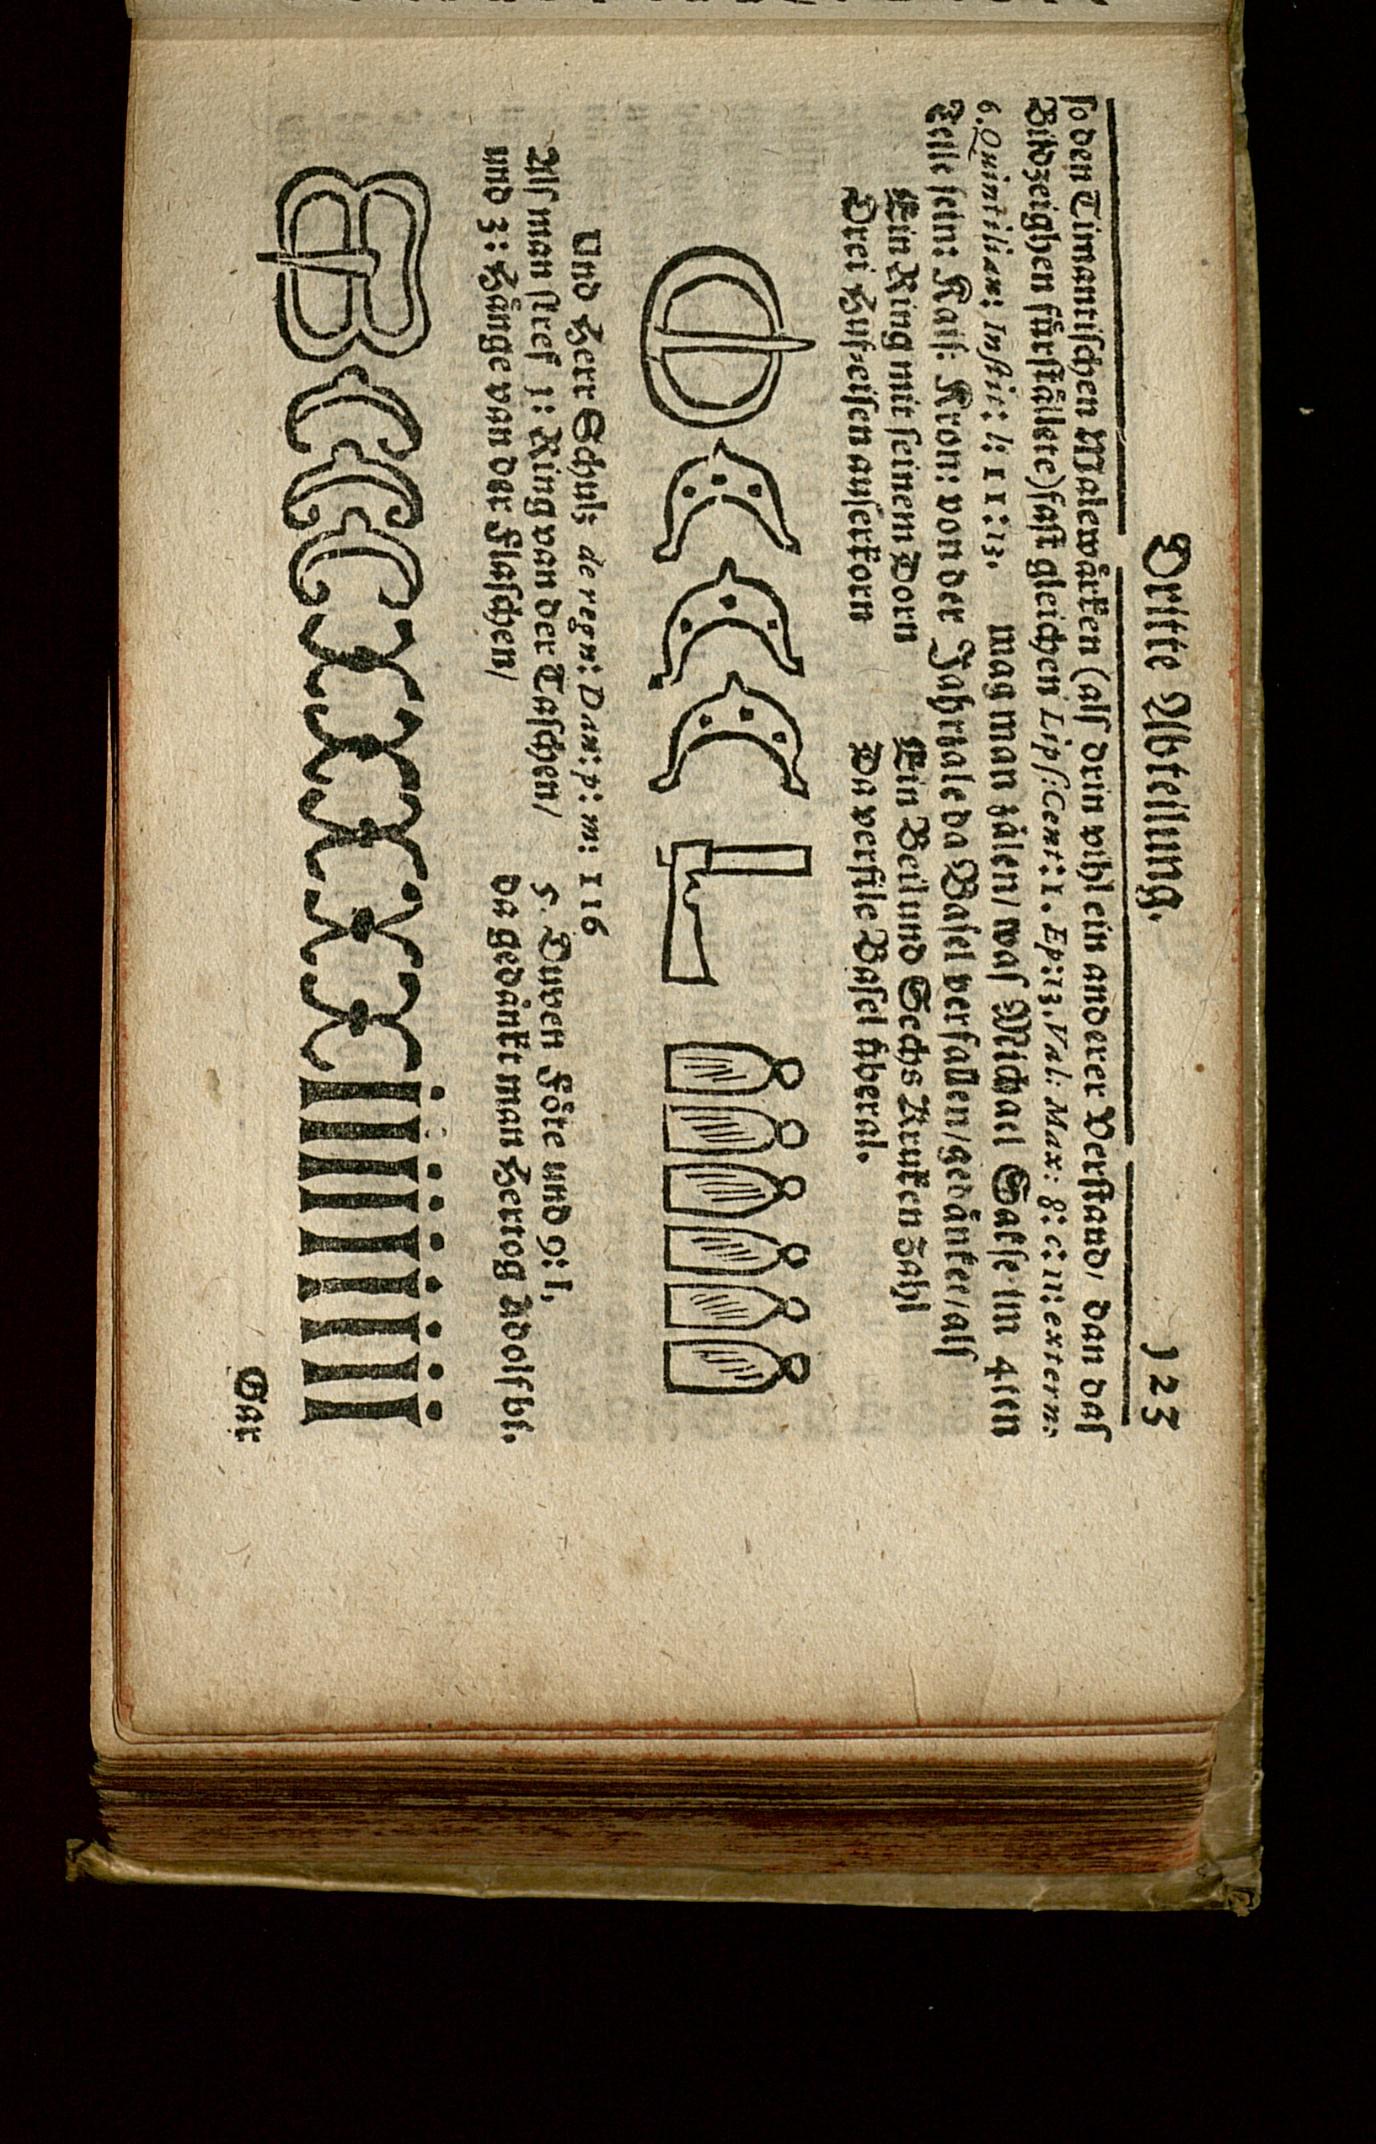 Dritte Abteilung. 123
so den Timantischen Malewårken (als drin vihl ein anderer Verstand, dan das
Bildzeighen fůrstållete) fast gleichen Lips: Cent: 1. Ep: 13. Val: Max: 8: c: 11: extern:
6. Quintilian: Instit: l: 11: 13. mag man zålen/ was Michael Sakse im 4ten
Teile sein: Kais: Kron: von der Jahrzale da Basel verfallen/ gedånket/ als
Ein Ring mit seinem Dorn Ein Beil und Sechs Kruken Zahl
Drei Huf-eisen auserkorn Da verfile Basel ůberal.
Und Herr Schulz de regn: Dan: p: m: 116
Als man stref 1: Ring van der Taschen/ 5. Duven Fôte und 9: I,
und 3: Hånge van der Flaschen/ da gedånkt man Hertog Adolf bi.
Gar